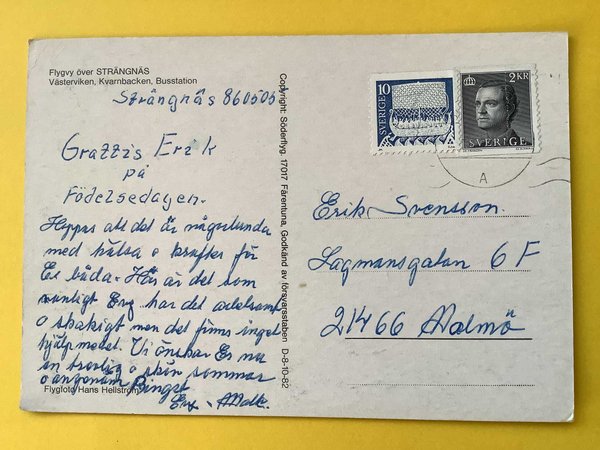 Flygvy över STRÄNGNÄS
Västerviken, Kvarnbacken, Busstation
Strängnäs 860505
Grattis Erik
på
Födelsedagen.
Hoppas att det är någorlunda
med hälsa o krafter för
Er båda. Här är det som
vanligt Evy har det
o skakigt men det finns inget
hjälpmedel. Vi önskar Er nu
en trevlig o skön sommar
o angenäm Pingst
Flygfoto Hans Hellström
Evy
Copyright: Söderflyg, 17017 Färentuna, Godkänd av försvarsstaben D-8-10-82
10
SVERIGE
2 KR
SVERIGE
A
Erik Svensson.
Lagmansgatan 6 F
21466 Malmö